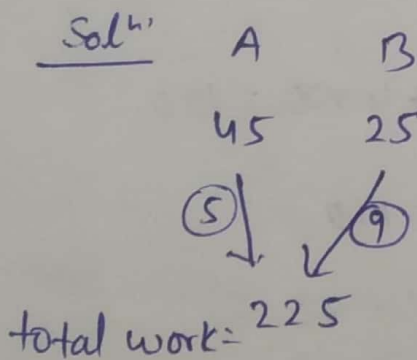 Solⁿ' A B
45 25
5 9
total work = 225